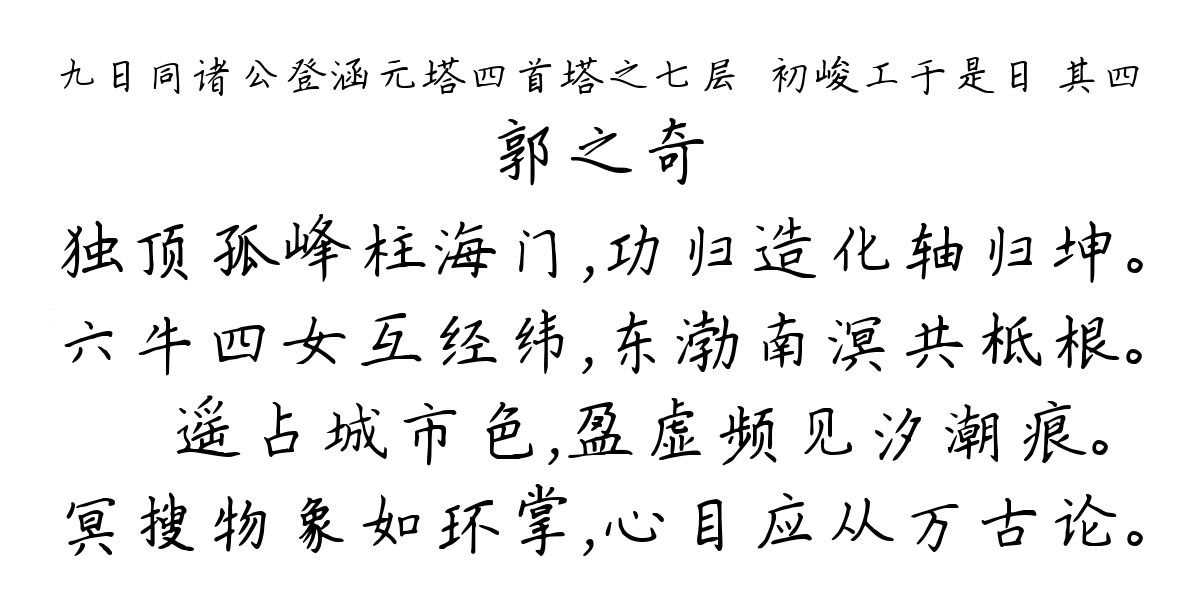 九日同诸公登涵元塔四首塔之七层 初峻工于是日 其四
郭之奇
独顶孤峰柱海门,功归造化轴归坤。
六牛四女互经纬,东渤南溟共柢根。
遥占城市色,盈虚频见汐潮痕。
冥搜物象如环掌,心目应从万古论。